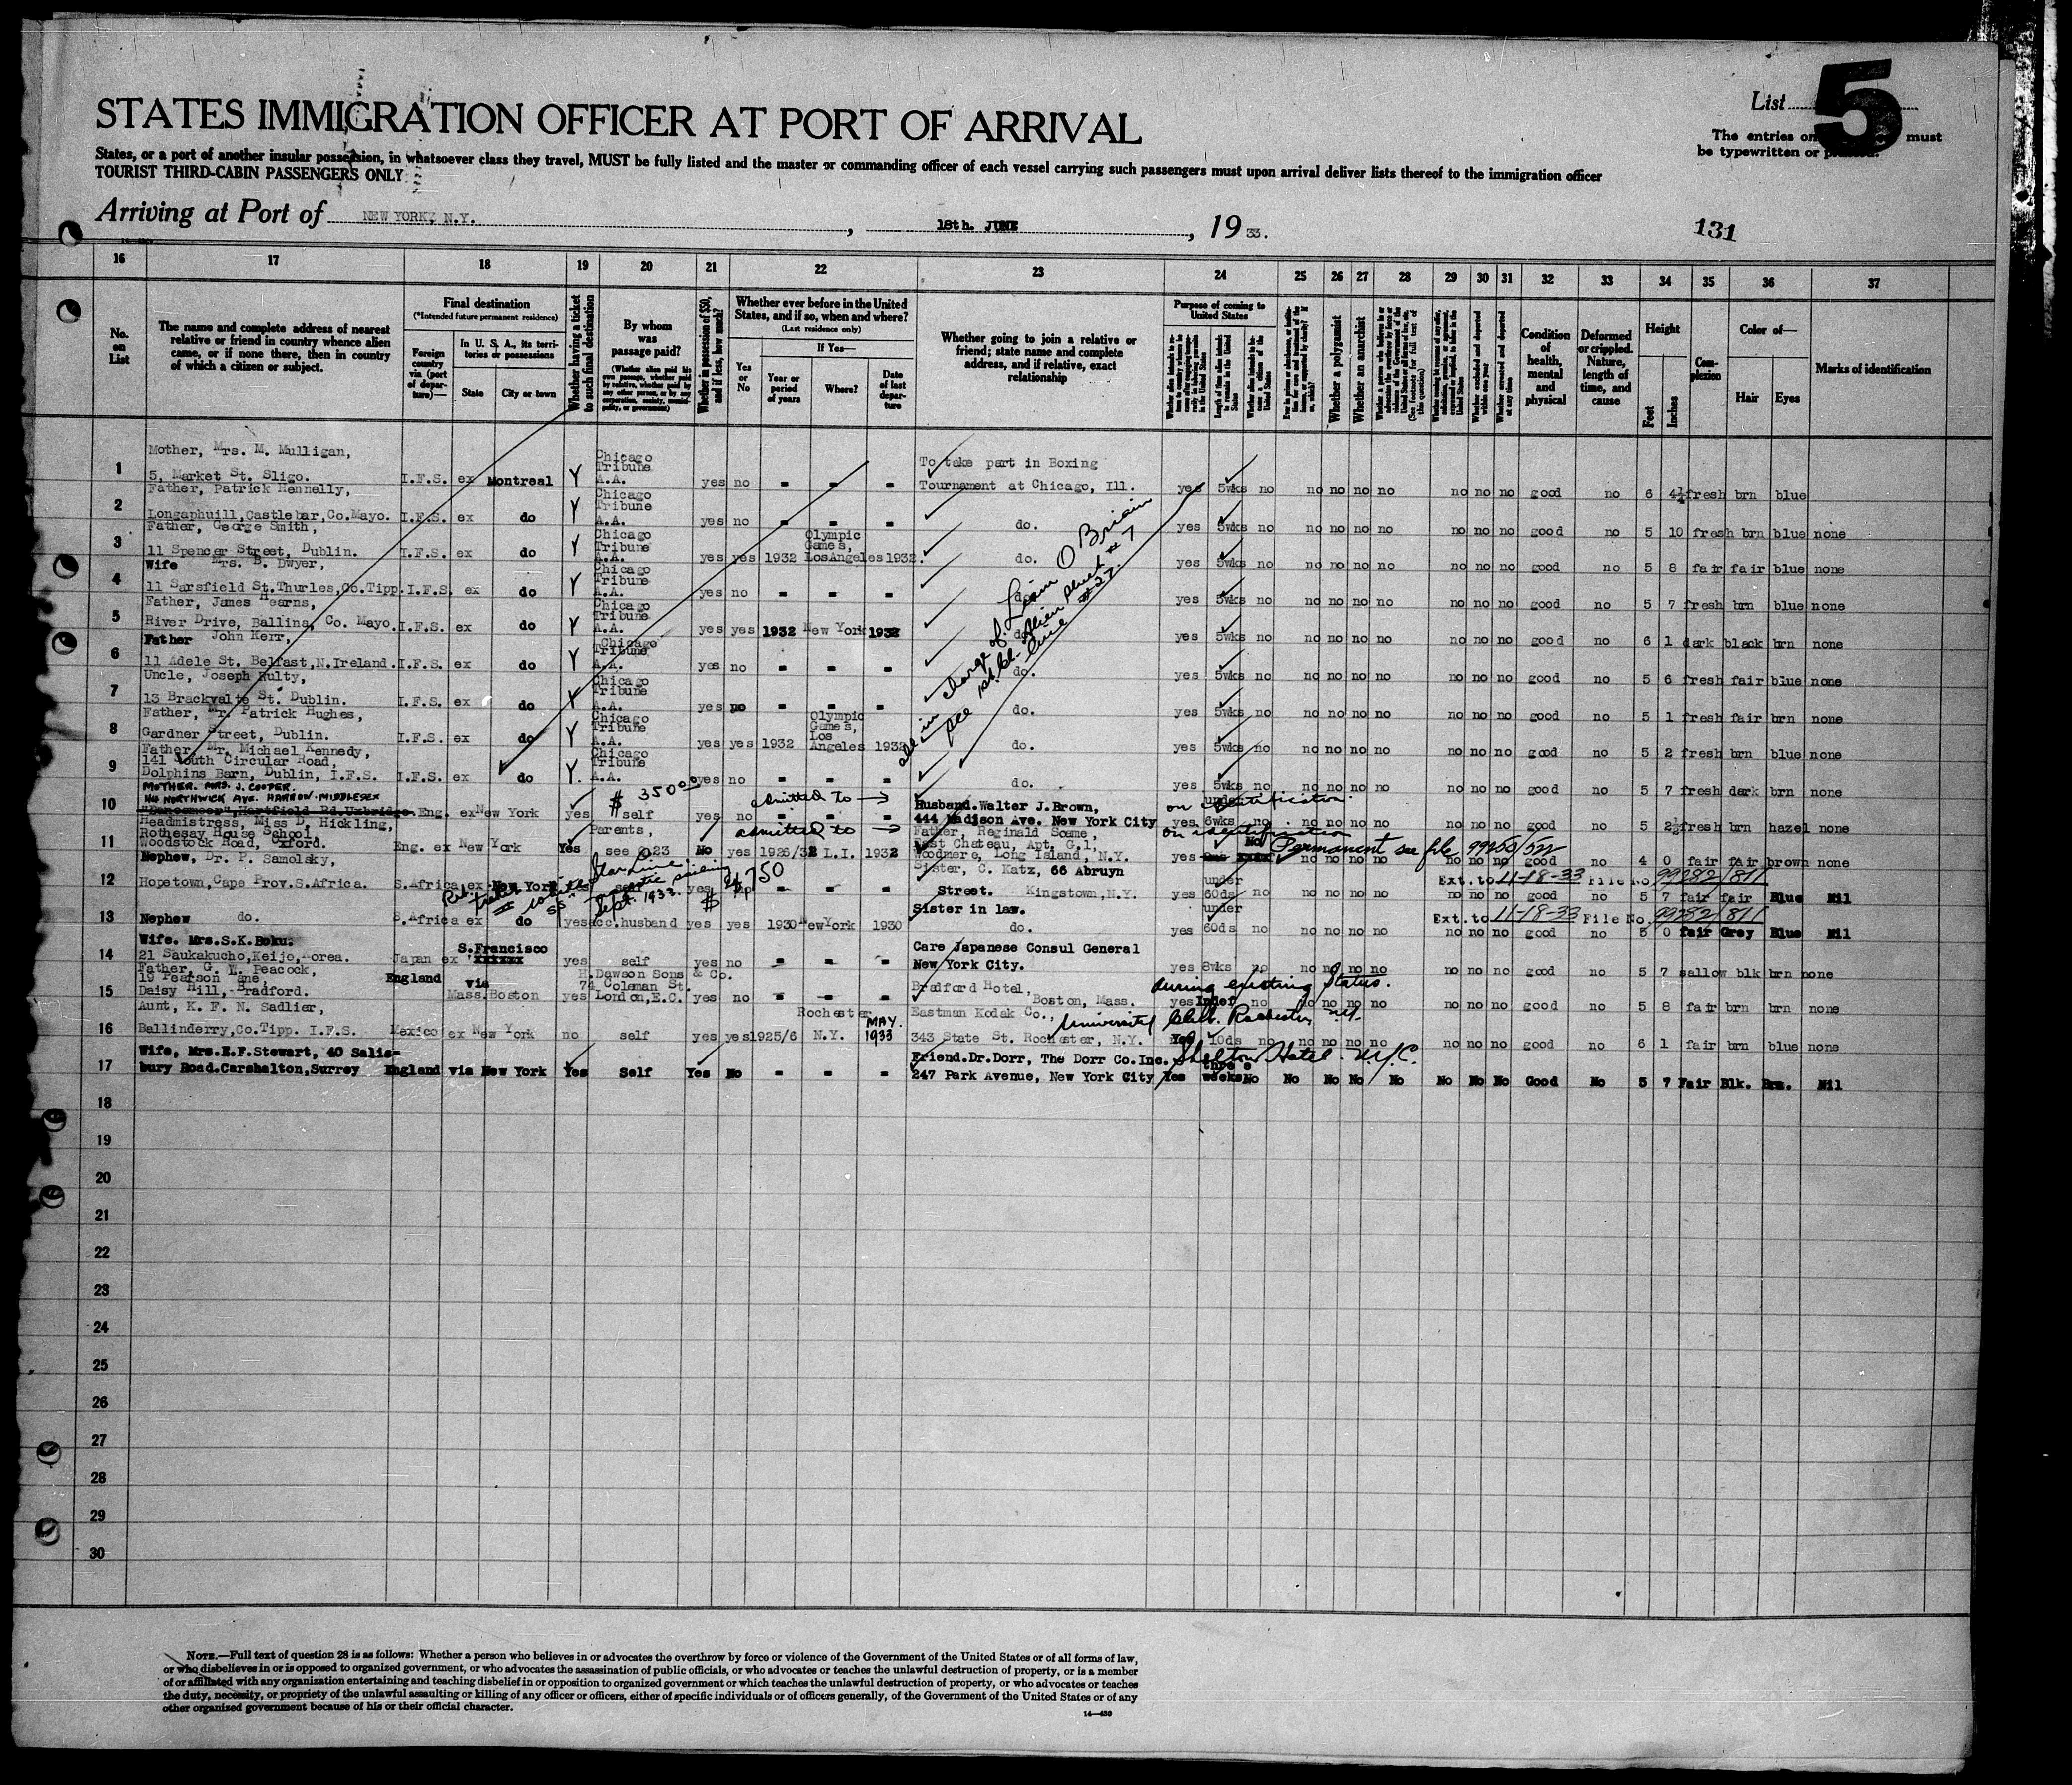 STATES IMMIGRATION OFFICER AT PORT OF ARRIVAL
List 5
The entries on must
be typewritten or printed.
States, or a port of another insular possession, in whatsoever class they travel, MUST be fully listed and the master or commanding officer of each vessel carrying such passengers must upon arrival deliver lists thereof to the immigration officer
TOURIST THIRD-CABIN PASSENGERS ONLY
Arriving at Port of NEW YORK, N.Y. , 18th. JUNE , 19 33.
131
16 17 18 19 20 21 22 23 24 25 26 27 28 29 30 31 32 33 34 35 36 37
No. on List
The name and complete address of nearest relative or friend in country whence alien came, or if none there, then in country of which a citizen or subject.
Final destination
(*Intended future permanent residence)
Foreign country via (port of departure)—
In U. S. A., its territories or possessions
State
City or town
Whether having a ticket to such final destination
By whom was passage paid?
(Whether alien paid his own passage, whether paid by relative, whether paid by any other person, or by any corporation, society, municipality, or government)
Whether in possession of $50, and if less, how much?
Whether ever before in the United States, and if so, when and where?
(Last residence only)
Yes or No
If Yes—
Year or period of years
Where?
Date of last departure
Whether going to join a relative or friend; state name and complete address, and if relative, exact relationship
Purpose of coming to United States
Length of time alien intends to remain in the United States
Whether a polygamist
Whether an anarchist
(See footnote for full text of this question)
Condition of health, mental and physical
Deformed or crippled. Nature, length of time, and cause
Height
Feet
Inches
Complexion
Color of—
Hair
Eyes
Marks of identification
Mother, Mrs. M. Mulligan,
1 5, Market St. Sligo. I.F.S. ex Montreal Y Chicago Tribune A.A. yes no - - - To take part in Boxing Tournament at Chicago, Ill. yes 5wks no no no no no no no no good no 6 4½ fresh brn blue
Father, Patrick Hennelly,
2 Longaphuill, Castlebar, Co. Mayo. I.F.S. ex do Y Chicago Tribune A.A. yes no - - - do. yes 5wks no no no no no no no no good no 5 10 fresh brn blue none
Father, George Smith,
3 11 Spencer Street, Dublin. I.F.S. ex do Y Chicago Tribune A.A. yes yes 1932 Olympic Games, LosAngeles 1932. do. yes 5wks no no no no no no no no good no 5 8 fair fair blue none
Wife Mrs. B. Dwyer,
4 11 Sarsfield St. Thurles, Co. Tipp. I.F.S. ex do Y Chicago Tribune A.A. yes no - - - do. yes 5wks no no no no no no no no good no 5 7 fresh brn blue none
Father, James Hearns,
5 River Drive, Ballina, Co. Mayo. I.F.S. ex do Y Chicago Tribune A.A. yes yes 1932 New York 1932 do. yes 5wks no no no no no no no no good no 6 1 dark black brn none
Father John Kerr,
6 11 Adele St. Belfast, N.Ireland. I.F.S. ex do Y Chicago Tribune A.A. yes no - - - do. yes 5wks no no no no no no no no good no 5 6 fresh fair blue none
Uncle, Joseph Hulty,
7 13 Brackvalte St. Dublin. I.F.S. ex do Y Chicago Tribune A.A. yes no - - - do. yes 5wks no no no no no no no no good no 5 1 fresh fair brn none
Father, Mr. Patrick Hughes,
8 Gardner Street, Dublin. I.F.S. ex do Y Chicago Tribune A.A. yes yes 1932 Olympic Games, Los Angeles 1932 do. yes 5wks no no no no no no no no good no 5 2 fresh brn blue none
Father, Mr. Michael Kennedy,
141 South Circular Road,
9 Dolphins Barn, Dublin, I.F.S. I.F.S. ex do Y. Chicago Tribune A.A. yes no - - - do. yes 5wks no no no no no no no no good no 5 7 fresh dark brn none
all in charge of Liam O Briain
see 1st Cl. Alien sheet # 7
line #27.
MOTHER. MRS. J. COOPER.
144 NORTHWICK AVE. HARROW-MIDDLESEX
10 Hartfield Rd. Uxbridge. Eng. ex New York yes $ 350⁰⁰ self yes no admitted to → - - - Husband. Walter J. Brown, 444 Madison Ave. New York City on identification. yes under 6wks no no no no no no no no good no 5 2½ fresh brn hazel none
Headmistress, Miss B. Hickling,
Rothesay House School,
11 Woodstock Road, Oxford. Eng. ex New York Yes Parents, see Q 23 No yes 1926/32 L.I. 1932 admitted to → Father, Reginald Soame, East Chateau, Apt. G.1, Woodmere, Long Island, N.Y. on identification yes No Permanent see file 99250/522 no no no no no no no good no 4 0 fair fair brown none
Nephew, Dr. P. Samolsky,
12 Hopetown, Cape Prov. S.Africa. S.Africa ex New York self yes $ 750 - - - Sister, C. Katz, 66 Abruyn Street. Kingstown, N.Y. yes under 60ds no Ext. to 11-18-33 File No. 99282/811 no no no no no no no good no 5 7 fair fair Blue Nil
Star Line
sailing Sept. 1933.
13 Nephew do. S.Africa ex do yes acc. husband yes yes 1930 New York 1930 Sister in law. do. yes under 60ds no Ext. to 11-18-33 File No. 99282/811 no no no no no no no good no 5 0 fair Grey Blue Nil
Wife. Mrs. S.K. Boku.
14 21 Saukakucho, Keijo, Korea. Japan ex S.Francisco yes self yes no - - - Care Japanese Consul General New York City. yes 8wks no no no no no no no no good no 5 7 sallow blk brn none
Father, G. E. Peacock,
19 Pearson Lane,
15 Daisy Hill, Bradford. England via Mass. Boston yes H. Dawson Sons & Co. 74, Coleman St. London, E.C. yes no - - - Bradford Hotel, Boston, Mass. during existing Status. yes Indef no no no no no no no no good no 5 8 fair brn brn none
Aunt, K. F. N. Sadlier,
16 Ballinderry, Co. Tipp. I.F.S. Mexico ex New York no self yes yes 1925/6 Rochester N.Y. MAY. 1933 Eastman Kodak Co., 343 State St. Rochester, N.Y. University Club. Rochester N.Y. Yes 10ds no no no no no no no no good no 6 1 fair brn blue none
Wife, Mrs. E.F. Stewart, 40 Salis-
17 bury Road. Carshalton, Surrey England via New York Yes Self Yes No - - - Friend. Dr. Dorr, The Dorr Co. Inc. 247 Park Avenue, New York City Shelton Hotel N.Y.C. Yes three weeks No No No No No No No No Good No 5 7 Fair Blk. Brn. Nil
18
19
20
21
22
23
24
25
26
27
28
29
30
NOTE.—Full text of question 28 is as follows: Whether a person who believes in or advocates the overthrow by force or violence of the Government of the United States or of all forms of law,
or who disbelieves in or is opposed to organized government, or who advocates the assassination of public officials, or who advocates or teaches the unlawful destruction of property, or is a member
of or affiliated with any organization entertaining and teaching disbelief in or opposition to organized government or which teaches the unlawful destruction of property, or who advocates or teaches
the duty, necessity, or propriety of the unlawful assaulting or killing of any officer or officers, either of specific individuals or of officers generally, of the Government of the United States or of any
other organized government because of his or their official character.
14—430